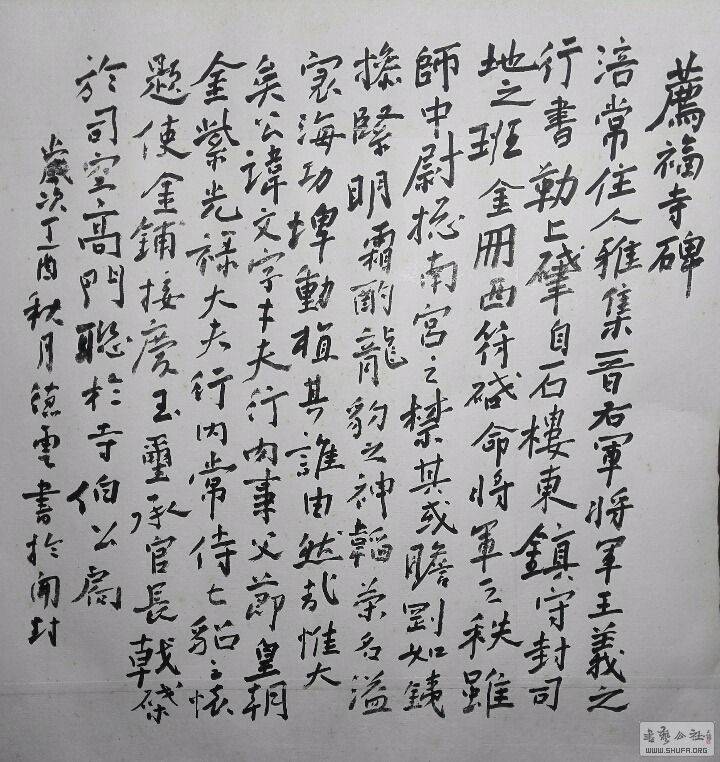 薦福寺碑
涪常住人雅集晉右軍將軍王羲之
行書勒上碑自石樓東鎮守封司
地之班金冊西符碱命將軍之秩雖
師中尉總南宮之禁其或瞻劉如錢
操緊明霜酌龍豹之神韜榮名溢
寰海功埤動植其誰由然哉惟大
矣公諱文字才夫行內事父節皇朝
金紫光祿大夫行內常侍七貂之悵
題使金鋪接慶玉璽承官長戟磔
於司空高門聡於寺伯公裔
歲次丁酉秋月德雲書於開封
書藝公社
WWW.SHUFA.ORG